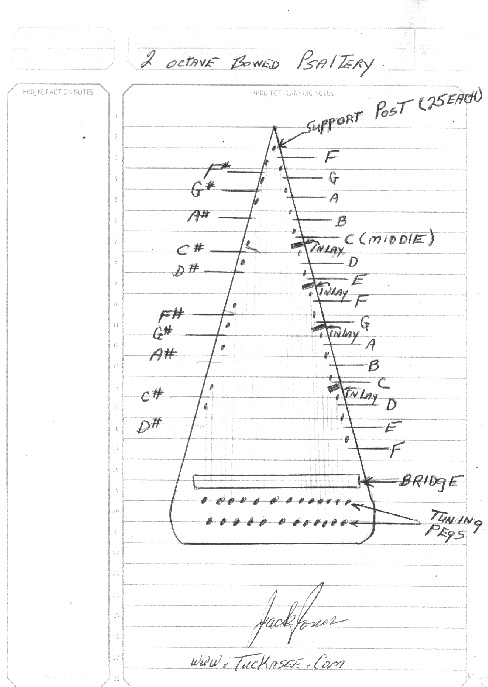 2 OCTAVE BOWED PSALTERY
PROJECT ACTION NOTES
SUPPORT POST (25 EACH)
F
F#
G
G#
A
A#
B
C (MIDDLE)
INLAY
C#
D
D#
E
INLAY
F
F#
G
G#
INLAY
A
A#
B
C
C#
INLAY
D
D#
E
F
BRIDGE
TUNING
PEGS
Jack
www.TucKasee.Com